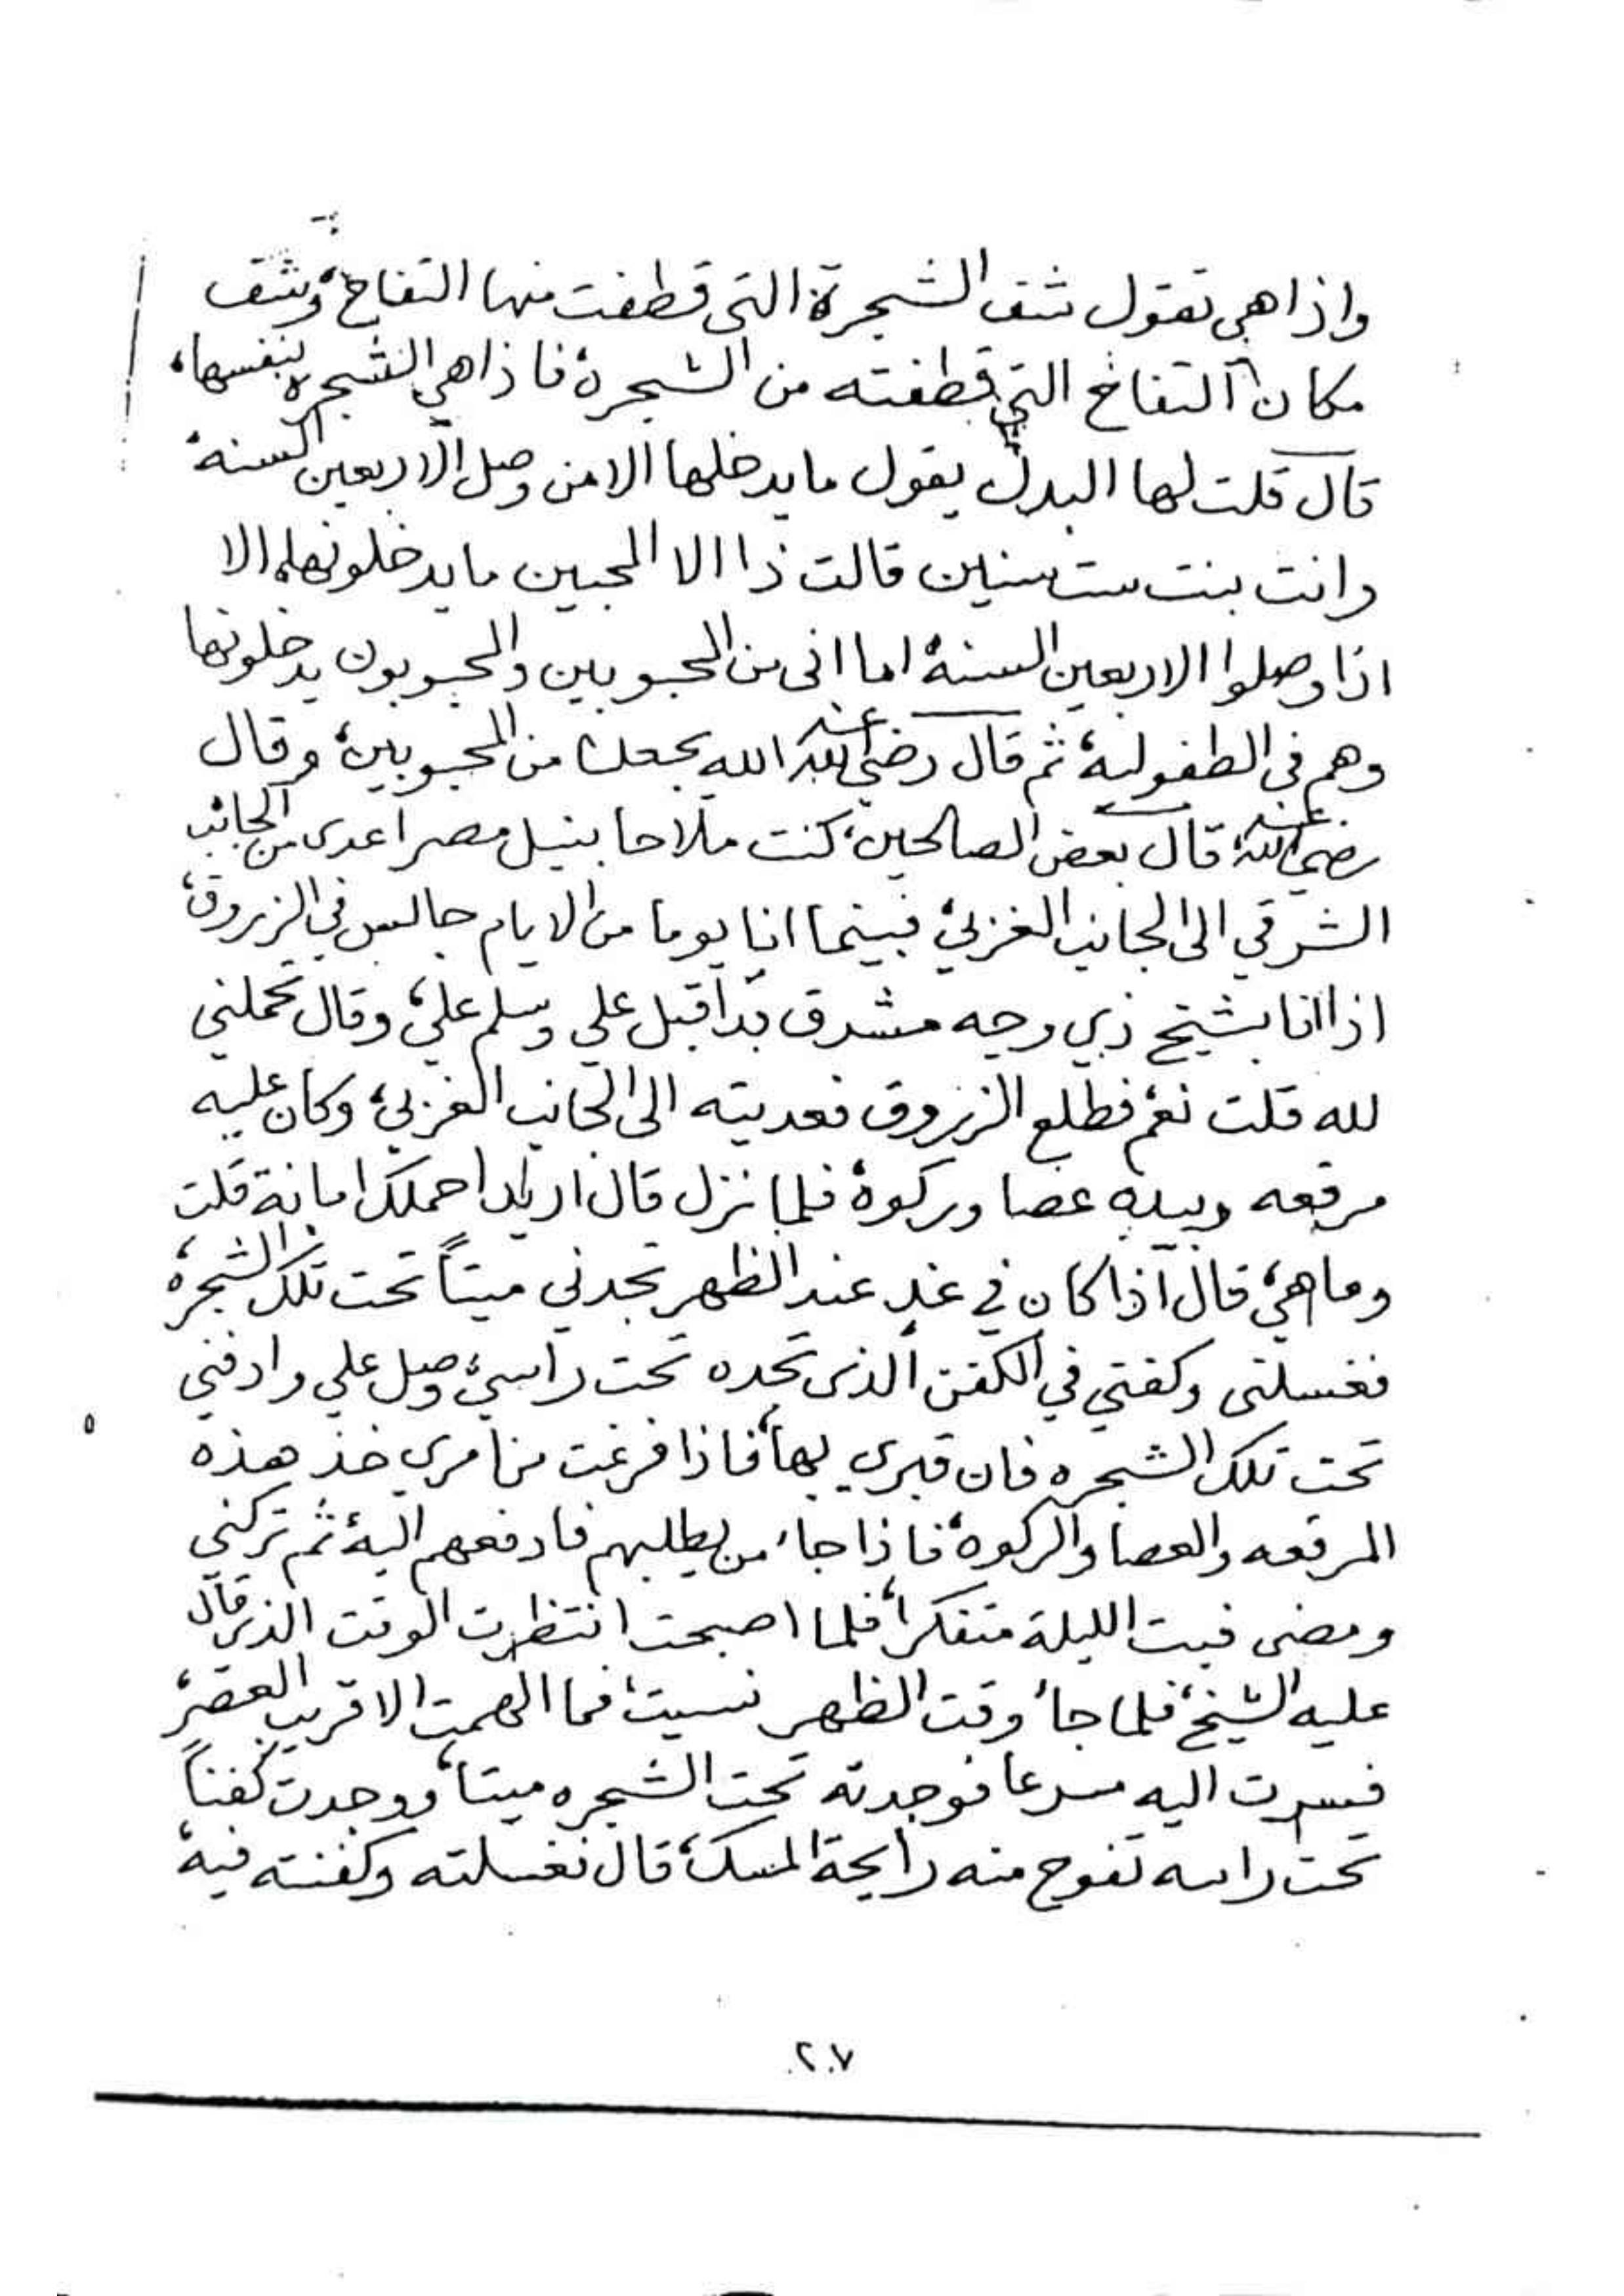 واذا هي تقول شف الشجرة التى قطفت منها التفاح، وشف
مكان التفاح التي قطفته من الشجرة، فاذا هي الشجره بنفسها،
قال قلت لها البدل يقول ما يدخلها الا من وصل الاربعين السنه
وانت بنت ست سنين قالت ذا الا المحبين ما يدخلونها الا
اذا وصلوا الاربعين السنة اما انى من المحبوبين والمحبوبون يدخلونها
وهم فى الطفولية، ثم قال رضي الله عنه الله يجعلنا من المحبوبين، وقال
رضي الله عنه قال بعض الصالحين، كنت ملاحا بنيل مصر اعدى من الجانب
الشرقي الى الجانب الغربي، فبينما انا يوما من الايام جالس في الزروق،
اذا انا بشيخ ذي وجه مشرق قد اقبل علي وسلم علي، وقال تحملني
لله قلت نعم فطلع الزروق فعديته الى الجانب الغربي، وكان عليه
مرقعه وبيده عصا وركوة، فلما نزل قال اريد احملك امانة قلت
وما هي، قال اذا كان في غدٍ عند الظهر تجدني ميتاً تحت تلك الشجرة،
فغسلنى وكفني في الكفن الذى تجده تحت راسي، وصل علي وادفني
تحت تلك الشجره فان قبري بها، فاذا فرغت من امري خذ هذه
المرقعه والعصا والركوة، فاذا جاء من يطلبهم فادفعهم اليه، ثم تركني
ومضى فبت الليلة متفكراً، فلما اصبحت انتظرت الوقت الذي قال
عليه الشيخ، فلما جاء وقت الظهر نسيت، فما الهمت الا قريب العصر،
فسرت اليه مسرعا فوجدته تحت الشجره ميتا، ووجدت كفناً
تحت راسه تفوح منه رايحة المسك، قال فغسلته وكفنته فيه،
٢٠٧